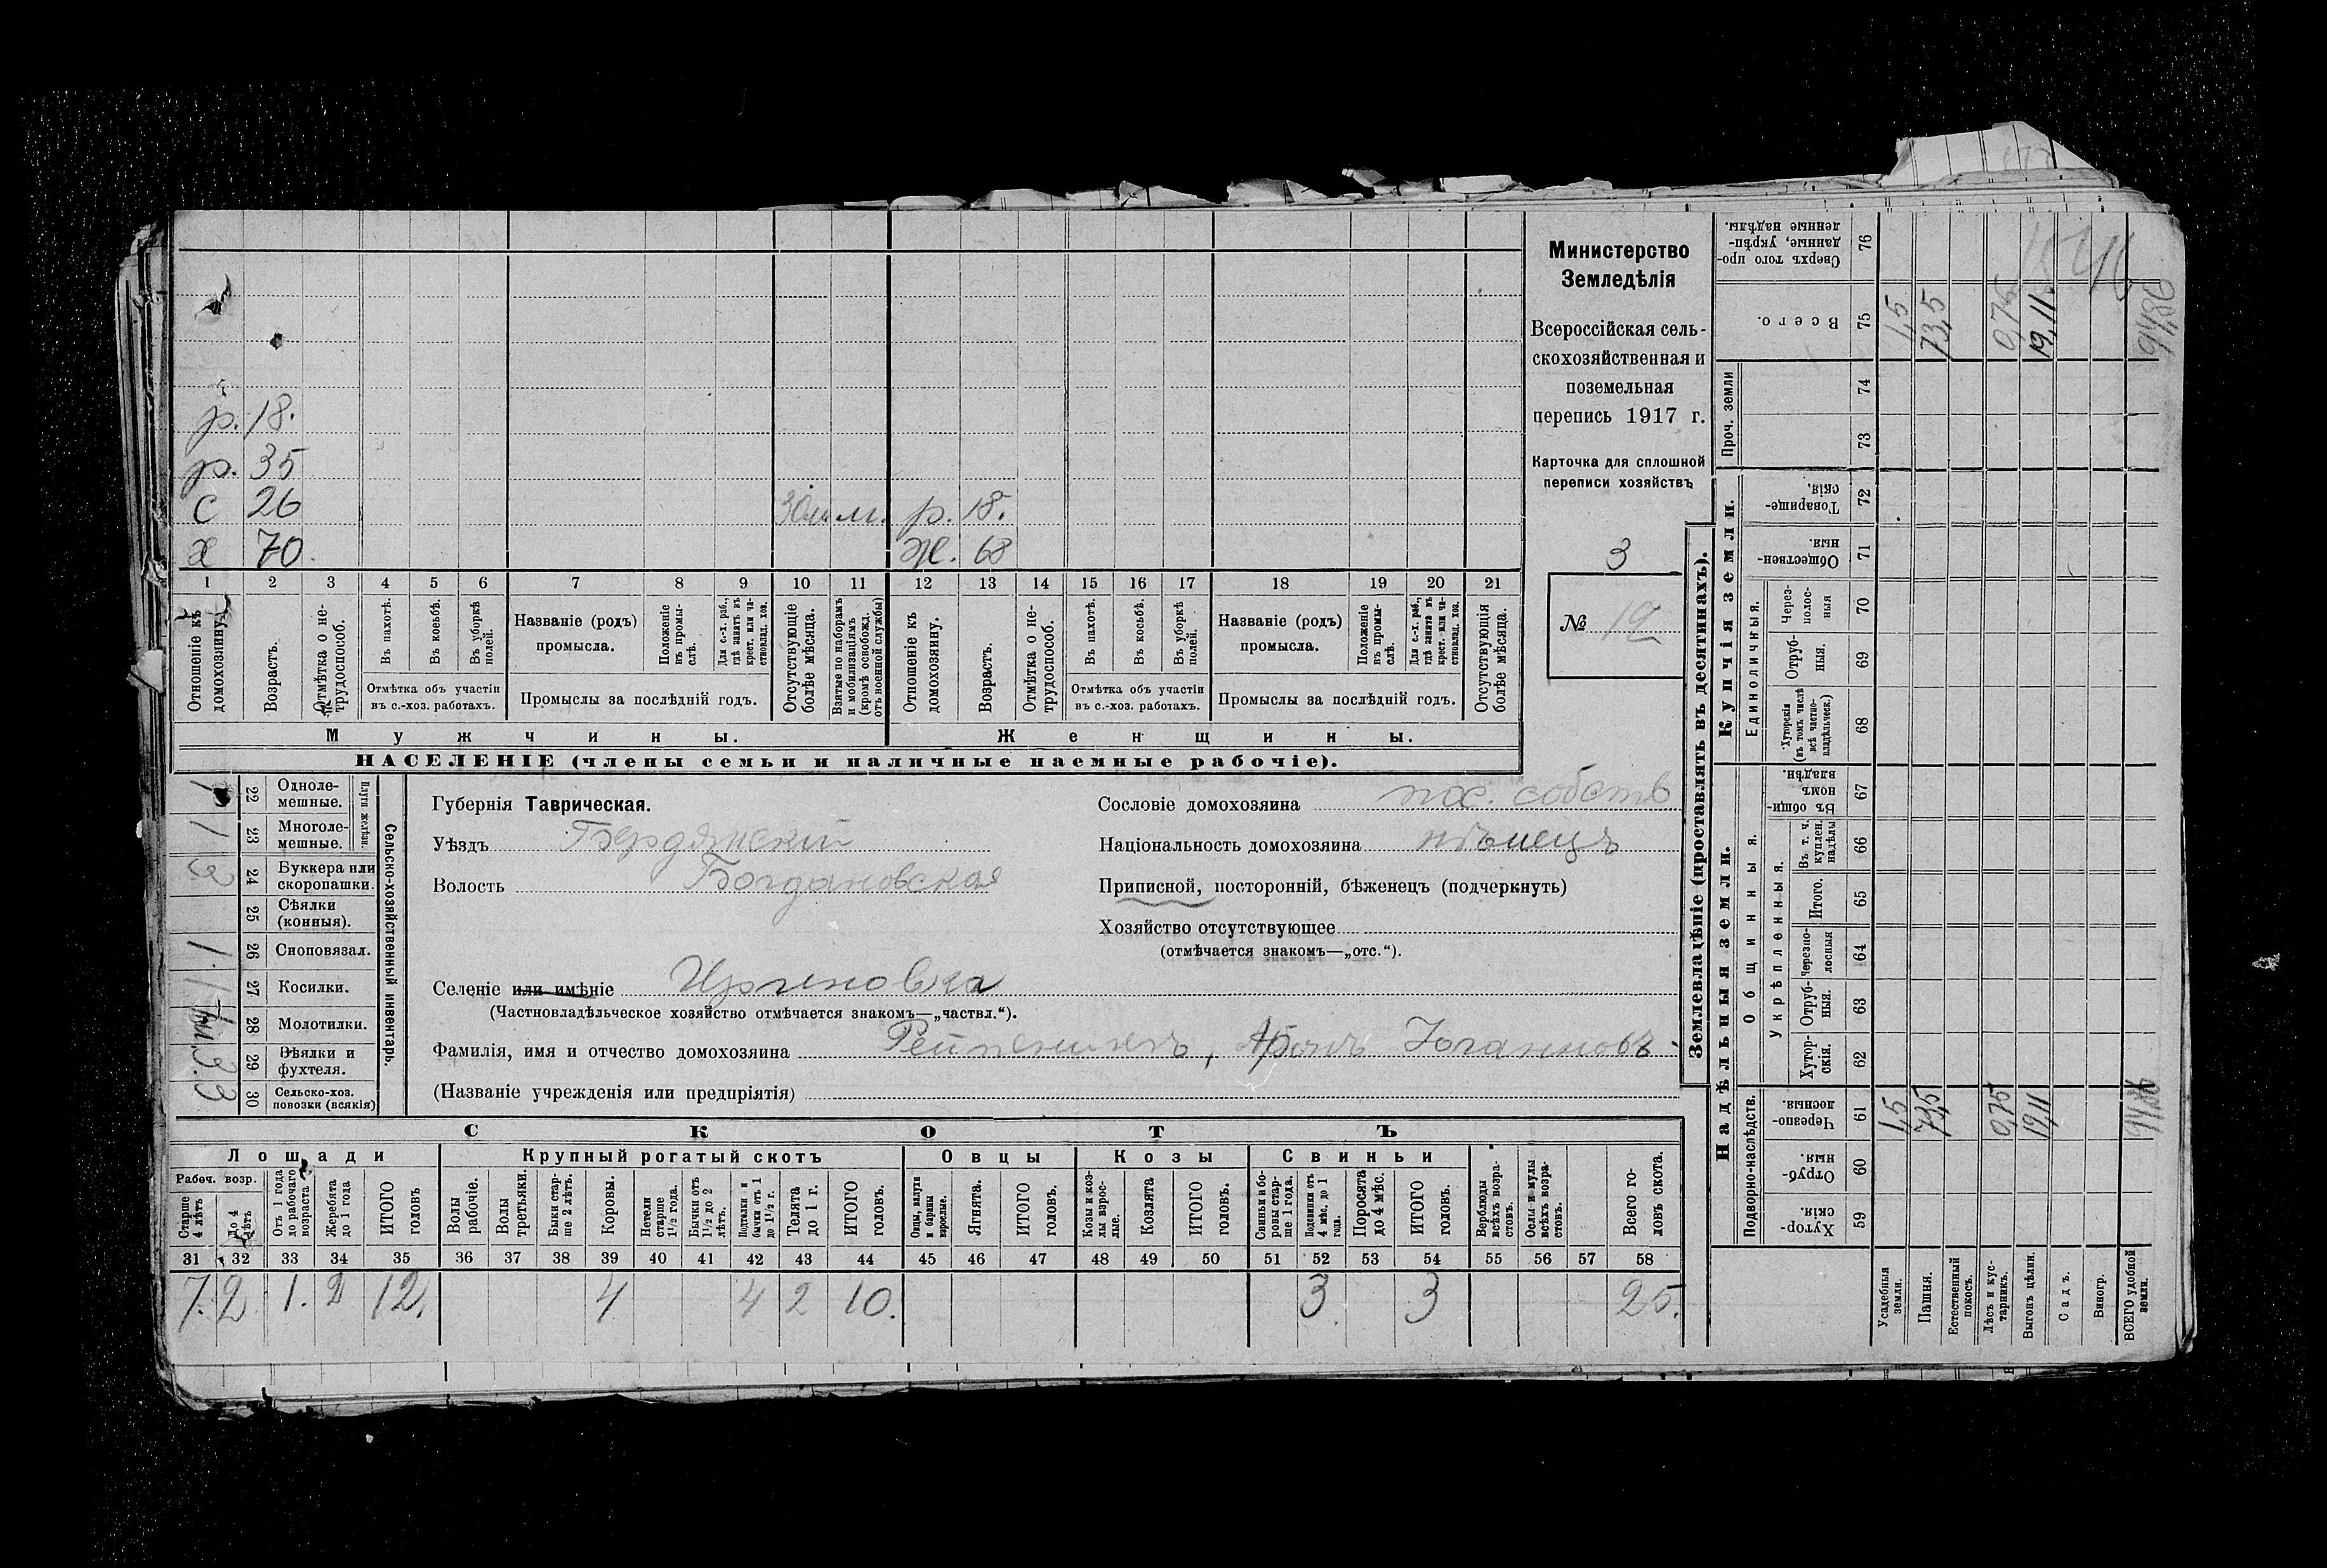 р. 18.
р. 35
с 26 30 м. м. р. 18.
х 70. Ж. 68
1 2 3 4 5 6 7 8 9 10 11 12 13 14 15 16 17 18 19 20 21
Отношеніе къ домохозяину.
Возрастъ.
Отмѣтка о не-трудоспособ.
Въ пахотѣ.
Въ косьбѣ.
Въ уборкѣ полей.
Отмѣтка объ участіи въ с.-хоз. работахъ.
Названіе (родъ) промысла.
Положеніе въ промы-слѣ.
Для с.-х. раб., гдѣ занятъ въ крест. или ча-стновлад. хоз.
Промыслы за послѣдній годъ.
Отсутствующіе болѣе мѣсяца.
Взятые по наборамъ и мобилизаціямъ (кромѣ освобожд. отъ военной службы)
Отношеніе къ домохозяину.
Возрастъ.
Отмѣтка о не-трудоспособ.
Въ пахотѣ.
Въ косьбѣ.
Въ уборкѣ полей.
Отмѣтка объ участіи въ с.-хоз. работахъ.
Названіе (родъ) промысла.
Положеніе въ промы-слѣ.
Для с.-х. раб., гдѣ занята въ крест. или ча-стновлад. хоз.
Промыслы за послѣдній годъ.
Отсутствующія болѣе мѣсяца.
Мужчины. Женщины.
НАСЕЛЕНІЕ (члены семьи и наличные наемные рабочіе).
Министерство
Земледѣлія
Всероссійская сель-
скохозяйственная и
поземельная
перепись 1917 г.
Карточка для сплошной
переписи хозяйствъ
3
№ 12
Плуги желѣзн.
22 Одноле-мешные.
1 23 Многоле-мешные.
2 24 Буккера или скоропашки.
25 Сѣялки (конныя).
1. 26 Сноповязал.
1 27 Косилки.
28 Молотилки.
3. 29 Вѣялки и фухтеля.
3 30 Сельско-хоз. повозки (всякія)
Сельско-хозяйственный инвентарь.
Губернія Таврическая.
Уѣздъ Бердянскій
Волость Богдановская
Селеніе или имѣніе
(Частновладѣльческое хозяйство отмѣчается знакомъ—„частвл.“).
Фамилія, имя и отчество домохозяина Іоганновъ
(Названіе учрежденія или предпріятія)
Сословіе домохозяина пос. собств
Національность домохозяина нѣмецъ
Приписной, посторонній, бѣженецъ (подчеркнуть)
Хозяйство отсутствующее
(отмѣчается знакомъ—„отс.“).
СКОТЪ
Лошади Крупный рогатый скотъ Овцы Козы Свиньи
Рабеч. возр.
Старше 4 лѣтъ
До 4 лѣтъ
Отъ 1 года до рабочаго возраста
Жеребята до 1 года
ИТОГО головъ
Волы рабочіе.
Волы третьяки.
Быки стар-ше 2 лѣтъ.
Коровы.
Нетели старше 1½ года.
Бычки отъ 1½ до 2 лѣтъ.
Подтелки и бычки отъ 1 до 1½ г.
Телята до 1 г.
ИТОГО головъ.
Овцы, валухи и бараны взрослые.
Ягнята.
ИТОГО головъ.
Козы и коз-лы взрос-лые.
Козлята
ИТОГО головъ.
Свиньи и бо-ровы стар-ше 1 года.
Подсвинки отъ 4 мѣс. до 1 года.
Поросята до 4 мѣс.
ИТОГО головъ.
Верблюды всѣхъ возра-стовъ.
Ослы и мулы всѣхъ возра-стовъ.
Всего го-ловъ скота.
31 32 33 34 35 36 37 38 39 40 41 42 43 44 45 46 47 48 49 50 51 52 53 54 55 56 57 58
7. 2 1. 2 12. 4 4 2 10. 3 3 25.
Землевладѣніе (проставлять въ десятинахъ).
Купчія земли.
Надѣльныя земли.
Сверхъ того про-данные, укрѣп-ленные надѣлы. 76
Всего. 75 1,5 73,5 0,75 19,11
Проч. земли 74 73
Товарище-скія. 72
Обществен-ныя. 71
Единоличныя.
Через-полос-ныя 70
Отруб-ныя. 69
Хуторскія (въ томъ числѣ всѣ частно-владѣльческ.) 68
Общинныя.
Въ общин-номъ владѣн. 67
Укрѣпленныя.
Въ т. ч. куплен. надѣлы 66
Итого. 65
Черезпо-лосныя 64
Отруб-ныя. 63
Хутор-скія. 62
Подворно-наслѣдств.
Черезпо-лосныя. 61 1,5 73,5 0,75 19,11 94,86
Отруб-ныя. 60
Хутор-скія. 59
Усадебныя земли.
Пашня.
Естественный покосъ.
Лѣсъ и кус-тарникъ.
Выгонъ цѣлин.
Садъ.
Виногр.
ВСЕГО удобной земли.